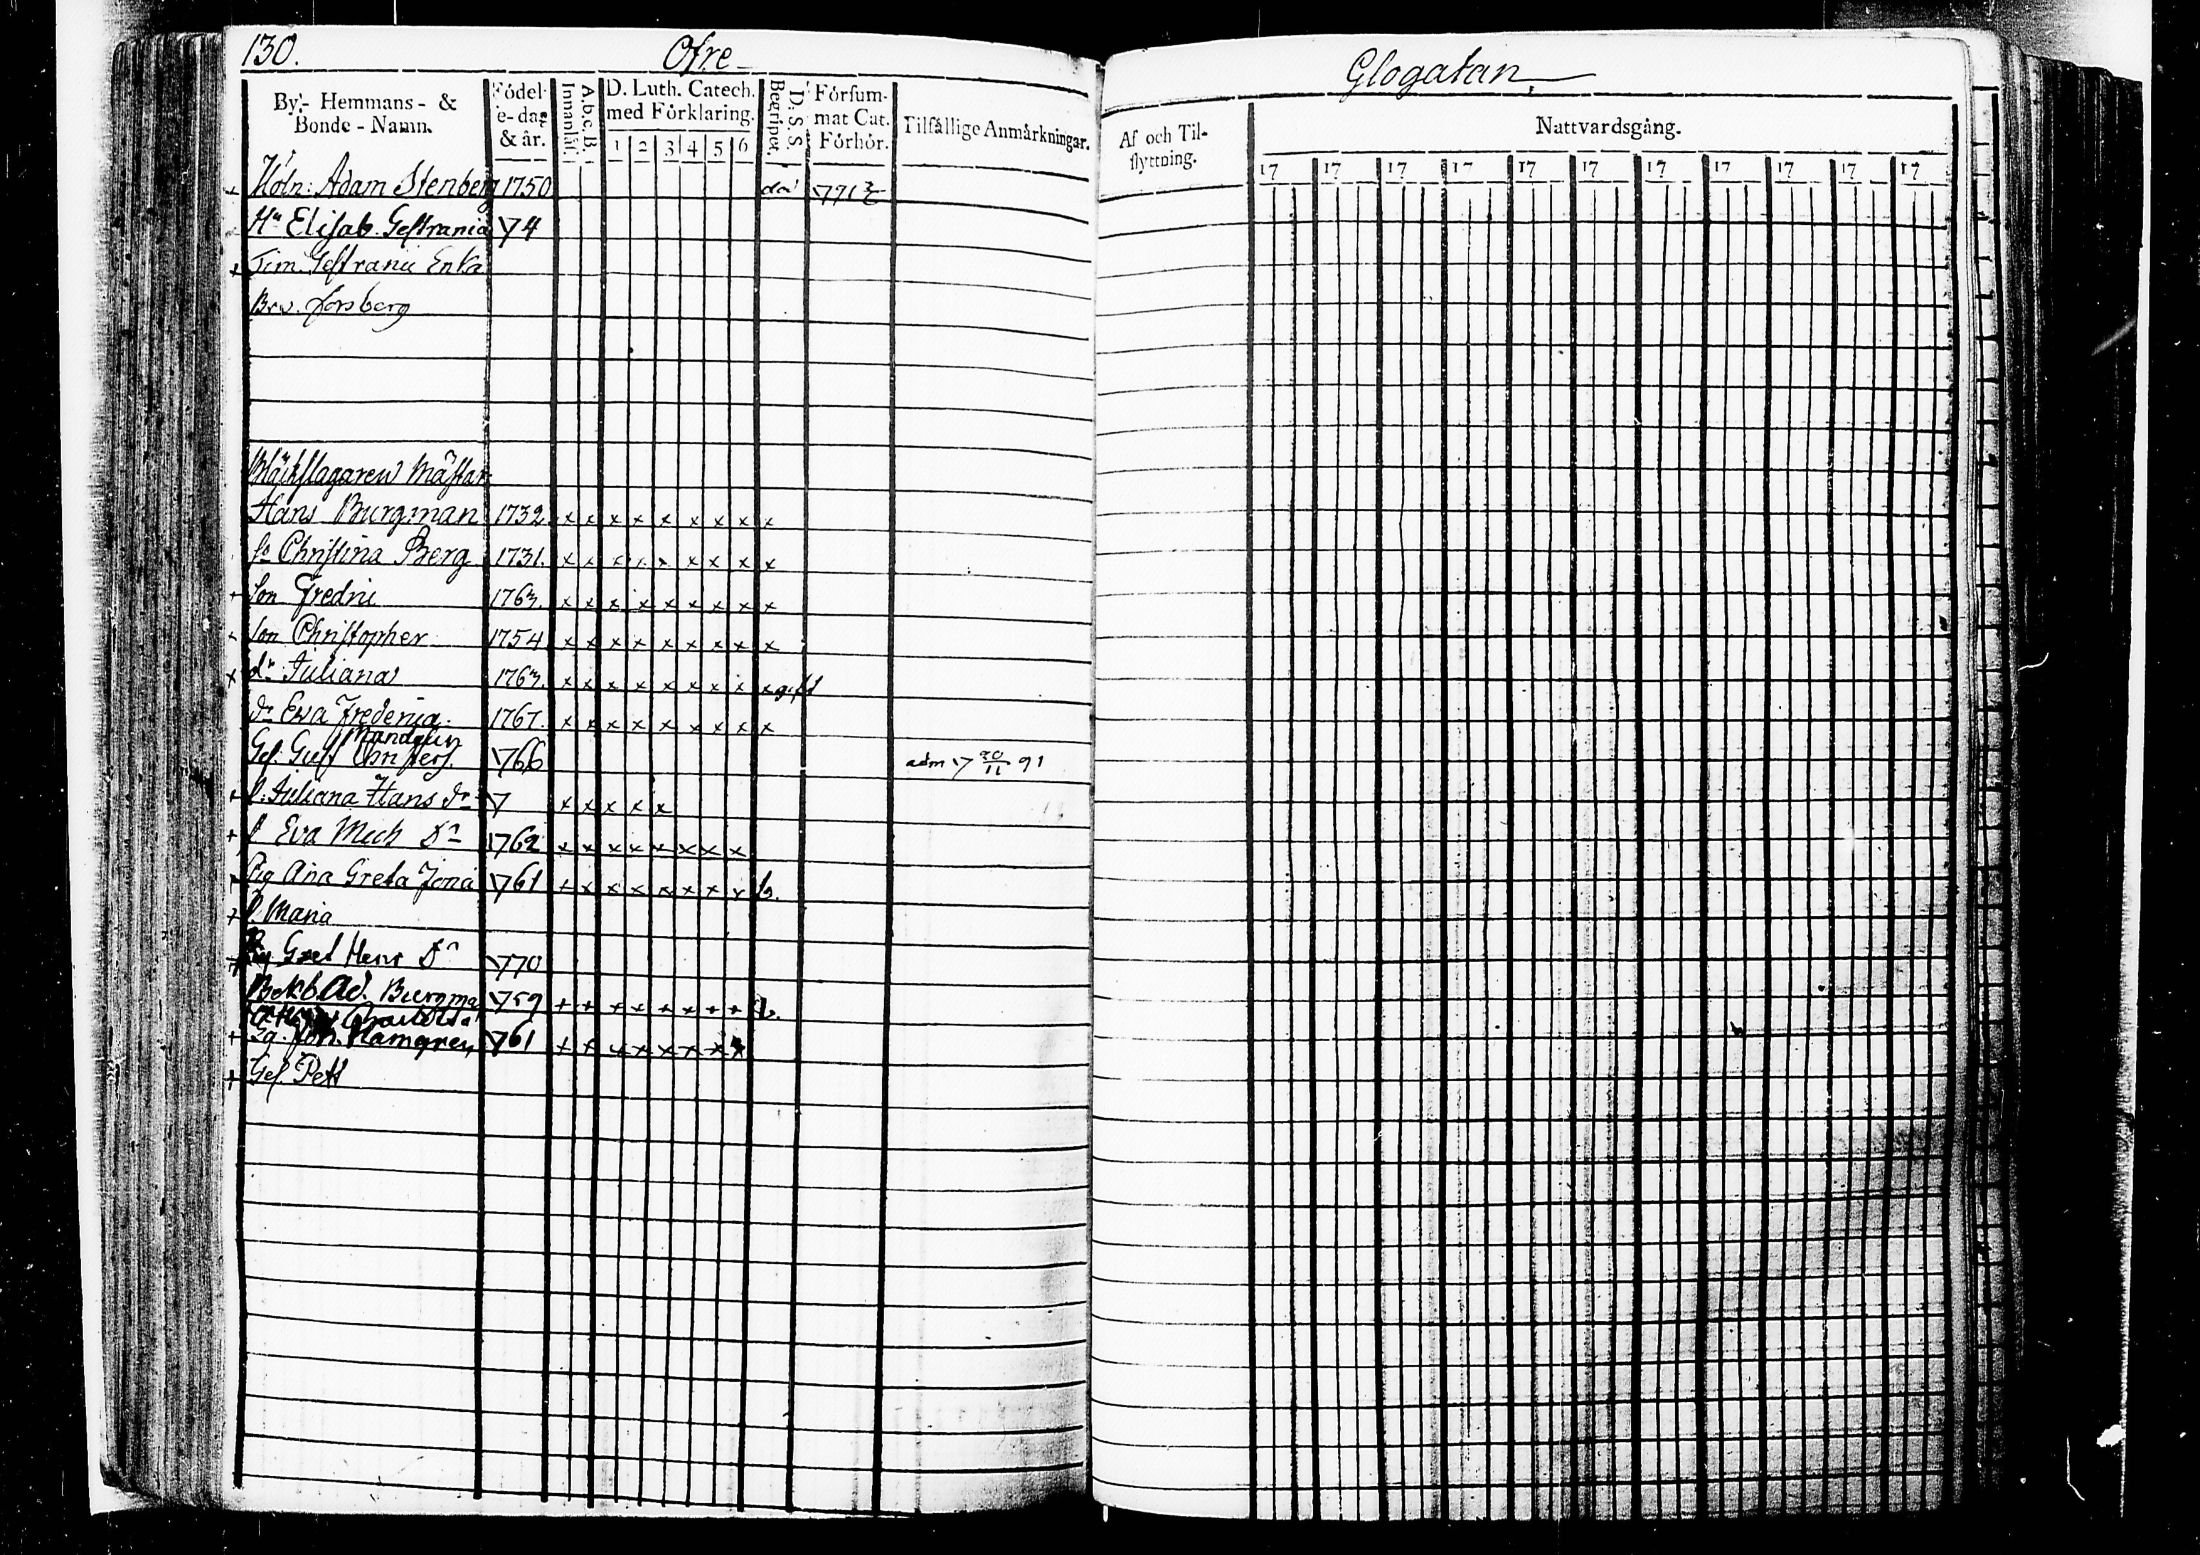 130. Ofre Glogatan
By- Hemmans- &
Bonde-Namn.
Födel-
se-dag
& år.
Innanläs.
A.b.c.B.
D. Luth. Catech.
med Förklaring.
1 2 3 4 5 6
Begripet.
D. S. S.
Försum-
mat Cat.
Förhör.
Tilfällige Anmärkningar.
Af och Til-
flyttning.
Nattvardsgång.
17 17 17 17 17 17 17 17 17 17 17
Adam Stenberg 1750
Elisab. Gestrania 74
+ Gestranii Enka
Forsberg
Mästar
Hans Burgman 1732 x x x x x x x x x
Christina Berg 1731. x x x x x x x x x
Son Fredric 1763. x x x x x x x x x
Son Christopher 1754 x x x x x x x x x
x dr Juliana 1763. x x x x x x x x x gift
dr Eva Frederica. 1767. x x x x x x x x x
Mandelin
Ges. Gust Christers. 1766 adm 17 20/11 91
+ p. Juliana Hans dr 17 x x x x x
+ p Eva Mich Dr 1762 x x x x x x x x
Pig Ana Greta Jona 1761 + x x x x x x x b.
+ p. Maria
Gret Henr Dr 1770
Ad. Burgma 1759 + + + + + + + + b.
+ Joh. Hamgren 1761 + + x x x x x x
+ Ges. Pett